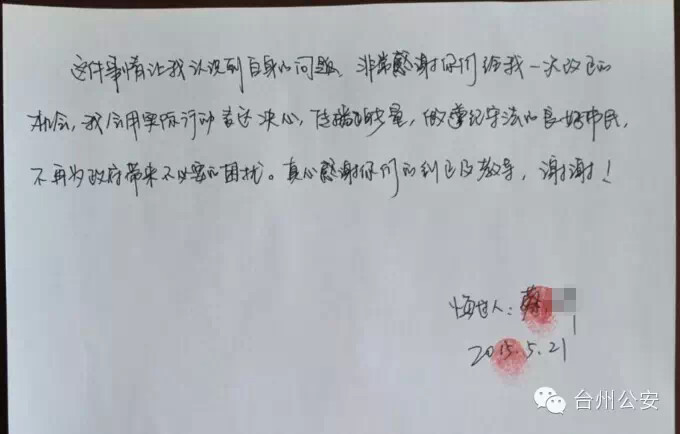 这件事情让我认识到自身的问题，非常感谢你们给我一次改正的
机会，我会用实际行动表达决心，传播正能量，做遵纪守法的良好市民，
不再为政府带来不必要的困扰。真心感谢你们的到及教导，谢谢！
悔过人：蔡
2015.5.21
台州公安